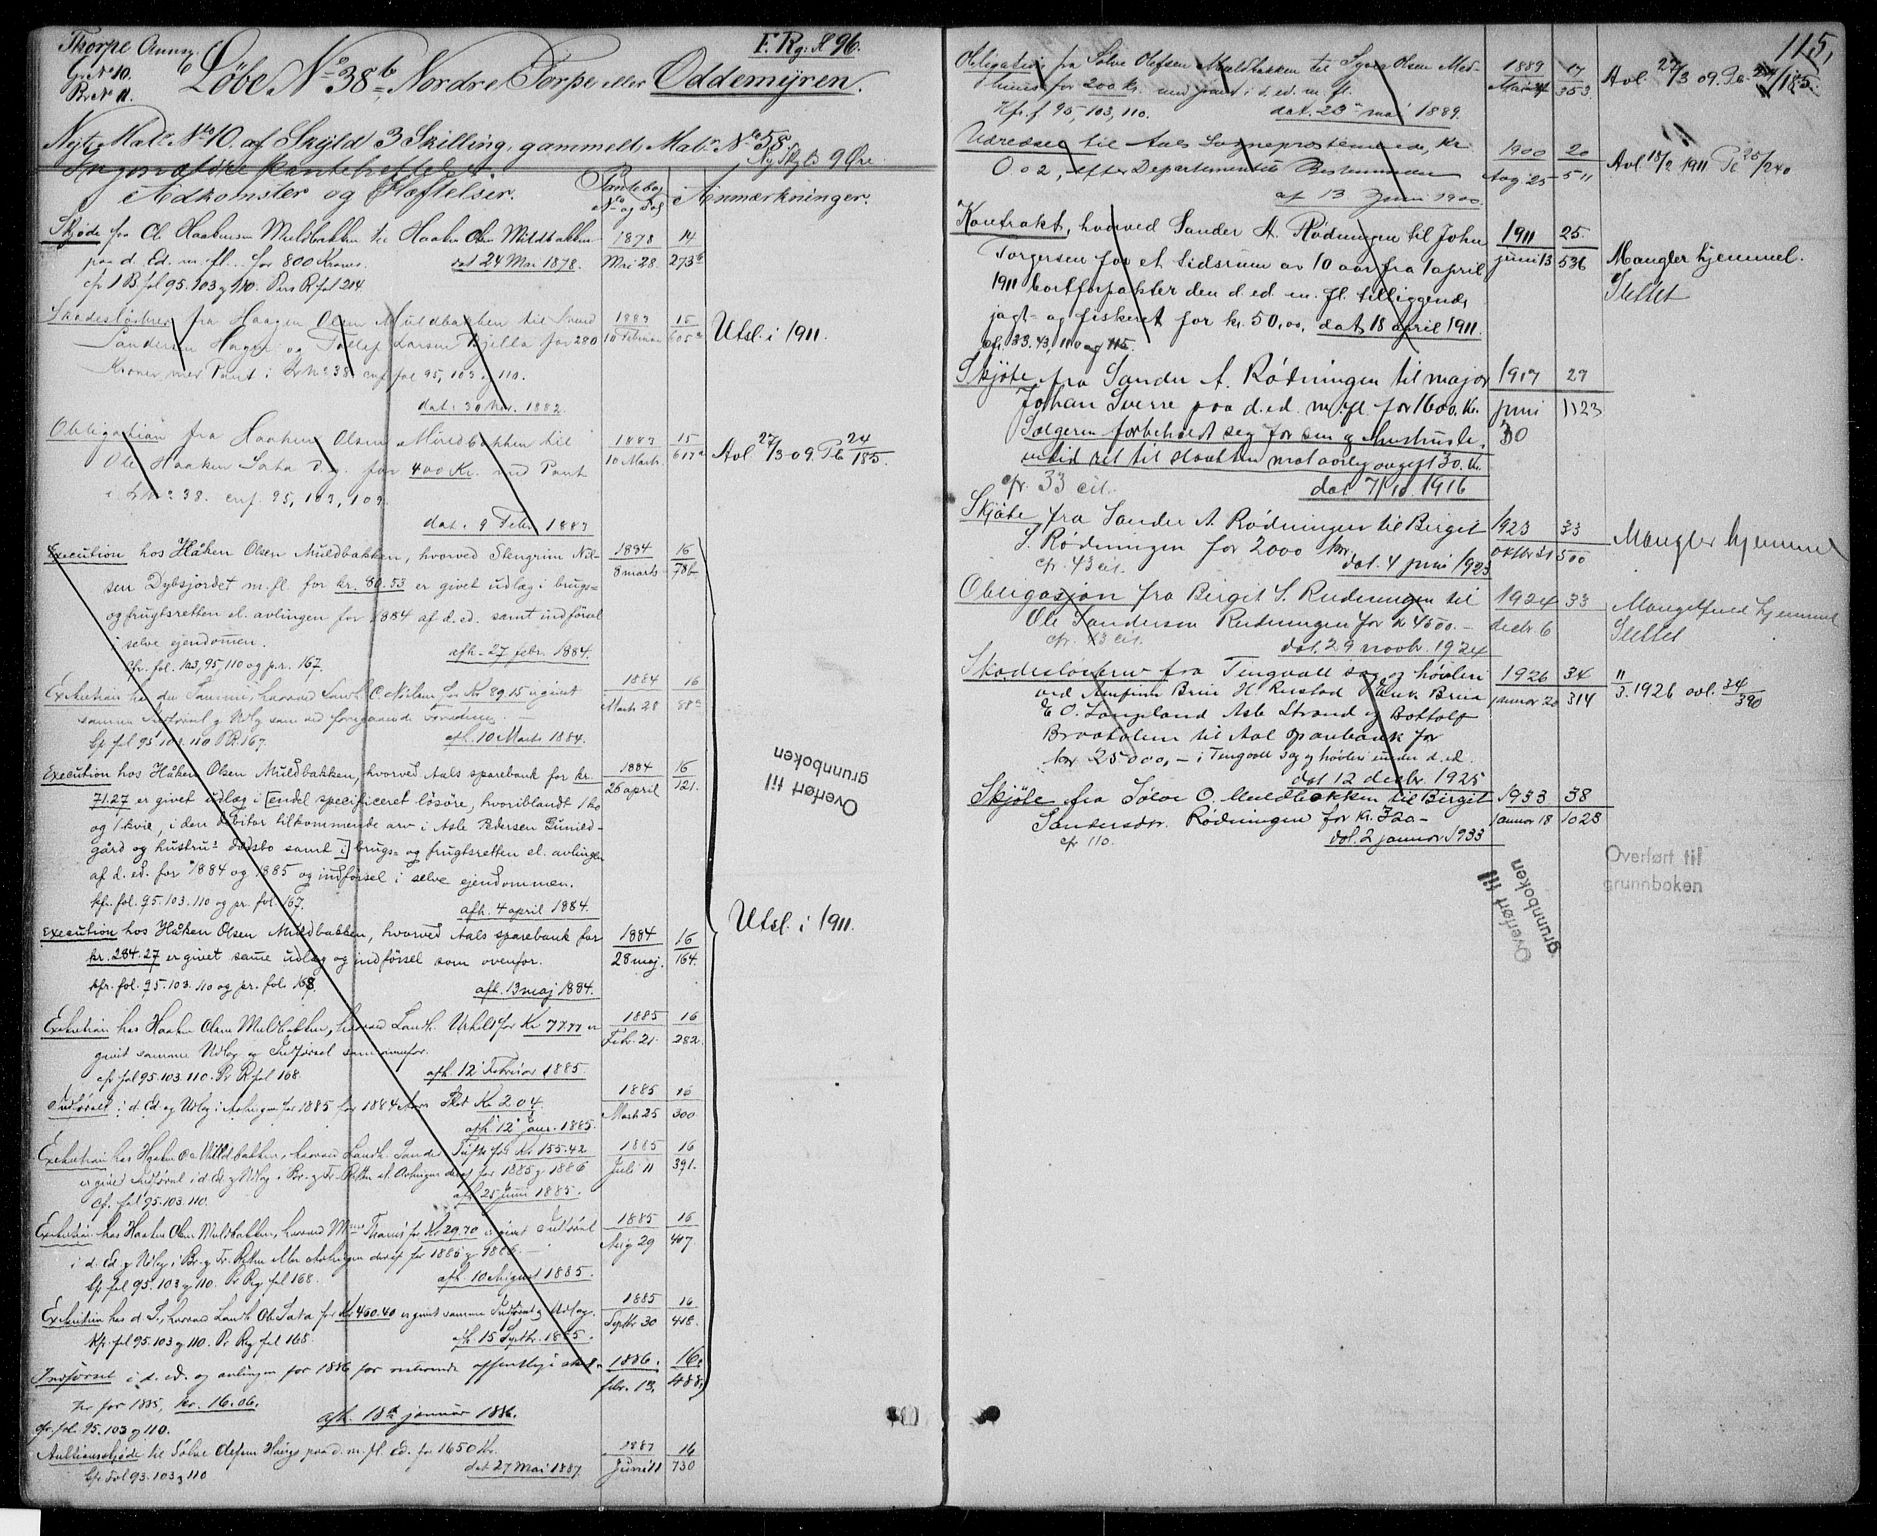 Thorpe Annex.
Gr. No 10.
Br. No 11.
F. Rg. A 96.
Löbe No 38b, Nordre Torpe eller Oddemyren.
Nytt Matr. No 10. af Skyld 3 Skilling, gammelt Matr. No 58.
Ny Skyld 9 Øre
Ingen ældre
Adkomster og Hæftelser.
Pantebog
No og Fol
Anmærkninger.
Skjøde fra O. Haakensen Muldbakken til Haaken Olsen Muldbakken 1878 14
paa d. Ed. m. fl. for 800 Kroner. dat 24 Mai 1878. Mai 28. 273a
cfr P B fol 95. 103 og 110. Pers R fol 214.
Skadesløsbrev fra Haagen Olsen Muldbakken til Svend 1883 15
Sandersen Hagen og Tollef Larsen Kjella for 280 10 Februar 605a Utsl. i 1911.
Kroner mer Pant i Lno 38. cnf fol 95, 103 og 110.
dat. 30 Nov. 1882.
Obligation fra Haaken Olsen Muldbakken til 1883 15
Ole Haaken Sata d.y. for 400 Kr. med Pant 10 Marts 617a Avl 27/3 09. Pb 24/185.
i Lno 38. cnf. 95, 103, 109.
dat. 9 Febr. 1883
Execution hos Håken Olsen Muldbakken, hvorved Stengrim Nil- 1884 16
sen Dybsjordet m. fl. for kr. 80.53 er givet udlæg i brugs- 8 marts 78b
og frugtsretten el. avlingen for 1884 af d. ed. samt indförsel
i selve ejendommen.
cfr. fol. 103, 95, 110 og p.r. 167. afh. 27 febr. 1884.
Exekution hos den Samme, hvorved Sarh. O. Nilsen for Kr 89.15 er givet 1884 16
samme Indførsel og Udlæg som ved foregaaende Forretning. Marts 28 88a
Cfr fol 95. 103. 110 P R. 167. afh. 10 Marts 1884.
Execution hos Håken Olsen Muldbakken, hvorved Aals sparebank for kr. 1884 16
71.27 er givet udlæg i [endel specificeret lösöre, hvoriblandt 1 ko 26 april 121.
og 1 kvie, i den debitor tilkommende arv i Asle Pedersen Gunild-
gård og hustrus dödsbo samt i] brugs- og frugtsretten el. avlingen
af d. ed. for 1884 og 1885 og indförsel i selve ejendommen.
kfr. fol. 95. 103. 110 og pr. fol 167. afh. 4 april 1884.
Execution hos Håken Olsen Muldbakken, hvorved Aals sparebank for 1884 16
kr. 284.27 er givet samme udlæg og indförsel som ovenfor. 28 maj. 164.
kfr. fol. 95. 103. 110 og pr. fol. 168. afh. 13 maj 1884.
Utsl. i 1911.
Exekution hos Haaken Olsen Muldbakken, hvorved Lanh. Urheld for Kr 77.77 er 1885 16
givet samme Udlæg og Indførsel som ovenfor. Febr. 21 282.
cfr fol 95. 103. 110. Pr R fol 168. afh. 12 Februar 1885
Indførsel i d. Ed og Udlæg i Avlingen for 1885 for 1884 Aars Skat Kr 2.04. 1885 16
afh. 12 Janr. 1885. Marts 25 300
Exekution hos Haaken O. Muldbakken, hvorved Lanh. Sander Tufte for Kr. 155.42 1885 16
er givet Indførsel i d. Ed og Udlæg i Br. og Fr. Retten el. Avlingen deraf for 1885 og 1886 Juli 11 391.
cf. fol 95. 103. 110. afh. 25 Juni 1885.
Exekution hos Haaken Olsen Muldbakken, hvorved for Kr 29.70 er givet Indførsel 1885 16
i d. Ed og Udlæg i Br. og Fr. Retten eller Avlingen deraf for 1885 og 1886. Aug 29 407.
Cfr fol 95. 103 og 110. Pr Rg. fol 168. afh. 10 August 1885.
Exekution hos d. S., hvorved Lanh Ole Sata for Kr 460.40 er givet samme Indførsel og Udlæg. 1885 16
Kfr. fol 95. 103 og 110. Pr Reg fol 168. afh. 15 Septbr. 1885. Septbr 30 418.
Indførsel i d. ed. og avlingen for 1886 for resterende offentlige skat- 1886. 16.
ter for 1885, kr. 16.06. febr. 13, 488,
afh. 18de januar 1886.
cfr. fol. 95. 103 og 110.
Auktionsskjøde til Sølve Olsen Haugs paa d. m. fl. Ed. for 1650 Kr. 1887 16
Cfr Fol 93. 103 og 110 dat 27 Mai 1887. Juni 11 730
Overført til
grunnboken
115,
Obligation fra Sølve Olesen Muldbakken til Syver Olsen Med- 1889 17
hus for 200 kr. med prior. i d. ed. m. fl. Mai 353. Avl 27/3 09. Pb 24/185.
Kfr. f 95, 103, 110. dat. 23 mai 1889.
Udredsel til Aals Sogneprestembede, Kr. 1900 20
0,02, efter Departementets Bestemmelse Aug. 25 511 Avl 18/2 1911 Pb 25/240
af 13 Juni 1900.
Kontrakt, hvorved Sander A. Rødningen til John 1911 25.
Torgersen for et tidsrum av 10 aar fra 1 april juni 13 536 Mangler hjemmel.
1911 bortforpakter den d. ed. m. fl. tilliggende Slettet
jagt- og fiskeret for kr. 50,00, dat 18 april 1911.
cfr. 33. 43, 110 og 115.
Skjøte fra Sander A. Rødningen til major 1917 27
Johan Sverre paa d. ed. m. fl. for 1600. kr. juni 1123
Sælgeren forbeholdt seg for sin og hustrus le- 30
vetid ret til slaatten mot aarlig avgift 30. kr.
cfr. 33 cit. dat 7/10. 1916
Skjøte fra Sander A. Rødningen til Birgit 1923 33
S. Rødningen for 2000 kr. oktbr 31 500 Mangler hjemmel
cfr. 43 cit. dat. 4 juni 1923
Obligasjon fra Birgit S. Rudningen til 1924 33 Mangel ved hjemmel
Ole Sanderson Rudningen for kr 4500.- decbr 6 Slettet
cfr. 43 cit. dat. 29 novbr. 1924
Skadesløsbrev fra Tingvoll sag og høvleri 1926 34 11/3. 1926 avl. 34/390
ved Arnfinn Brun H. Rustad Henk Brun januar 20 314
E. O. Langeland Asle Strand og Bottolf
Braatalien til Aal sparebank for
kr 25000,- i Tingvoll sag og høvleri under d. ed.
dat 12 decbr. 1925
Skjøte fra Sølve O. Muldbakken til Birgit 1933 38
Sandersdtr. Rødningen for kr. 320- januar 18 1023
cfr 110. dat. 2 januar 1933
Overført til
grunnboken
Overført til
grunnboken